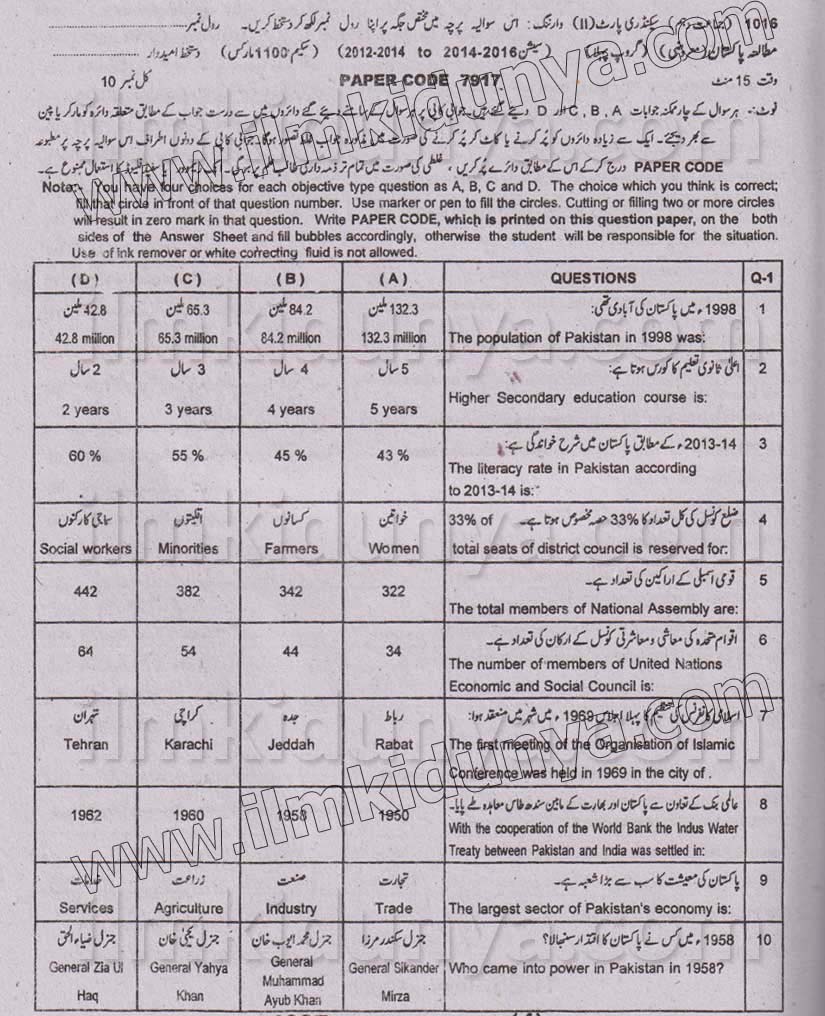 1016 (جماعت دہم) سیکنڈری پارٹ (II) وارننگ: اس سوالیہ پرچہ میں مختص جگہ پر اپنا رول نمبر لکھ کر دستخط کریں۔ رول نمبر
مطالعہ پاکستان (معروضی) (گروپ پہلا) (سیشن 2014-2016 to 2012-2014) (سکیم 1100 مارکس) دستخط امیدوار
وقت 15 منٹ PAPER CODE 7917 کل نمبر 10
نوٹ:- ہر سوال کے چار ممکنہ جوابات A ,B ,C اور D دیئے گئے ہیں۔ جوابی کاپی پر ہر سوال کے سامنے دیئے گئے دائروں میں سے درست جواب کے مطابق متعلقہ دائرہ کو مارکر یا پین
سے بھر دیجئے۔ ایک سے زیادہ دائروں کو پُر کرنے یا کاٹ کر پُر کرنے کی صورت میں مذکورہ جواب غلط تصور ہوگا۔ جوابی کاپی کے دونوں اطراف اس سوالیہ پرچہ پر مطبوعہ
PAPER CODE درج کر کے اس کے مطابق دائرے پُر کریں، غلطی کی صورت میں تمام تر ذمہ داری طالب علم پر ہوگی۔ کا استعمال ممنوع ہے۔
Note:- You have four choices for each objective type question as A, B, C and D. The choice which you think is correct;
fill that circle in front of that question number. Use marker or pen to fill the circles. Cutting or filling two or more circles
will result in zero mark in that question. Write PAPER CODE, which is printed on this question paper, on the both
sides of the Answer Sheet and fill bubbles accordingly, otherwise the student will be responsible for the situation.
Use of ink remover or white correcting fluid is not allowed.
(D) (C) (B) (A) QUESTIONS Q-1
42.8 ملین 65.3 ملین 84.2 ملین 132.3 ملین 1998ء میں پاکستان کی آبادی تھی: 1
42.8 million 65.3 million 84.2 million 132.3 million The population of Pakistan in 1998 was:
2 سال 3 سال 4 سال 5 سال اعلیٰ ثانوی تعلیم کا کورس ہوتا ہے: 2
2 years 3 years 4 years 5 years Higher Secondary education course is:
60 % 55 % 45 % 43 % 2013-14ء کے مطابق پاکستان میں شرح خواندگی ہے: 3
The literacy rate in Pakistan according
to 2013-14 is:
سماجی کارکنوں اقلیتوں کسانوں خواتین ضلع کونسل کی کل تعداد کا 33% حصہ مخصوص ہوتا ہے۔ 33% of 4
Social workers Minorities Farmers Women total seats of district council is reserved for:
442 382 342 322 قومی اسمبلی کے اراکین کی تعداد ہے۔ 5
The total members of National Assembly are:
64 54 44 34 اقوام متحدہ کی معاشی و معاشرتی کونسل کے ارکان کی تعداد ہے۔ 6
The number of members of United Nations
Economic and Social Council is:
تہران کراچی جدہ رباط اسلامی کانفرنس کی تنظیم کا پہلا اجلاس 1969ء میں شہر میں منعقد ہوا: 7
Tehran Karachi Jeddah Rabat The first meeting of the Organisation of Islamic
Conference was held in 1969 in the city of .
1962 1960 1958 1950 عالمی بنک کے تعاون سے پاکستان اور بھارت کے مابین سندھ طاس معاہدہ طے پایا۔ 8
With the cooperation of the World Bank the Indus Water
Treaty between Pakistan and India was settled in:
خدمات زراعت صنعت تجارت پاکستان کی معیشت کا سب سے بڑا شعبہ ہے۔ 9
Services Agriculture Industry Trade The largest sector of Pakistan's economy is:
جنرل ضیاء الحق جنرل یحییٰ خان جنرل محمد ایوب خان جنرل سکندر مرزا 1958ء میں کس نے پاکستان کا اقتدار سنبھالا؟ 10
General Zia Ul Haq General Yahya Khan General Muhammad Ayub Khan General Sikander Mirza Who came into power in Pakistan in 1958?
www.ilmkidunya.com
www.ilmkidunya.com
ilmkidunya.com
ilmkidunya.com
ilmkidunya.com